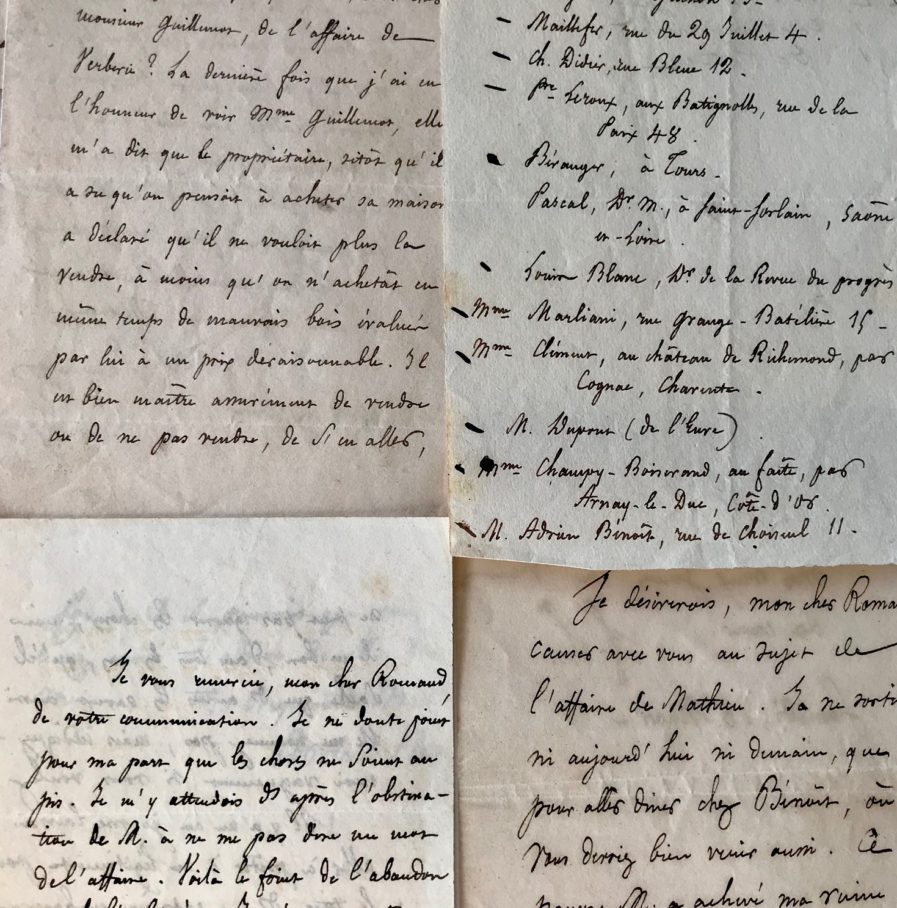 monsieur Guillemot, de l'affaire de
Verberie ? La dernière fois que j'ai eu
l'honneur de voir Mme Guillemot, elle
m'a dit que le propriétaire, sitôt qu'il
a su qu'on pensoit à acheter sa maison
a déclaré qu'il ne vouloit plus la
vendre, à moins qu'on n'achetât en
même temps de mauvais bois évalués
par lui à un prix déraisonnable. Il
est bien maître assurément de vendre
ou de ne pas vendre, de s'en aller,
Maillefer, rue du 29 Juillet 4.
Ch. Didier, rue Bleue 12.
Pre Leroux, aux Batignolles, rue de la
Paix 48
Béranger, à Tours.
Pascal, Dr M., à Saint-Sorlain, Saône
et-Loire.
Louis Blanc, Dr de la Revue du progrès
Mme Marliani, rue Grange-Batélière 15
Mme Clément, au château de Richemond, par
Cognac, Charente.
M. Dupont (de l'Eure).
Mme Champy-Boiserand, au faîte, par
Arnay-le-Duc, Côte-d'Or.
M. Adrien Bénoît, rue de Choiseul 11.
Je vous remercie, mon cher Romand,
de votre communication. Je ne doute point
pour ma part que les choses ne soient au
pis. Je m'y attendois d'après l'obstina-
tion de M. à ne me pas dire un mot
de l'affaire. Voilà le fruit de l'abandon
Je désirerois, mon cher Roma
causer avec vous au sujet de
l'affaire de Mathieu. Je ne sorti
ni aujourd'hui ni demain, que
pour aller diner chez Bénoît, où
vous devriez bien venir aussi. Ce
pauvre M. a achevé ma ruine